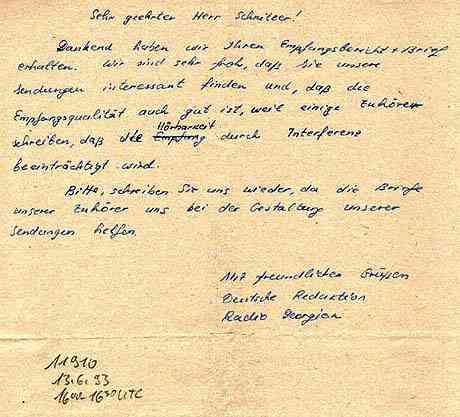 Sehr geehrter Herr Schnitzer!
Dankend haben wir Ihren Empfangsbericht + Brief
erhalten. Wir sind sehr froh, daß Sie unsere
Sendungen interessant finden und, daß die
Empfangsqualität auch gut ist, weil einige Zuhörer
Hörbarkeit
schreiben, daß die Empfang durch Interferenz
beeinträchtigt wird.
Bitte, schreiben Sie uns wieder, da die Briefe
unserer Zuhörer uns bei der Gestaltung unserer
Sendungen helfen.
Mit freundlichen Grüßen
Deutsche Redaktion
Radio Georgien
11910
13.6.93
1600 1630 UTC